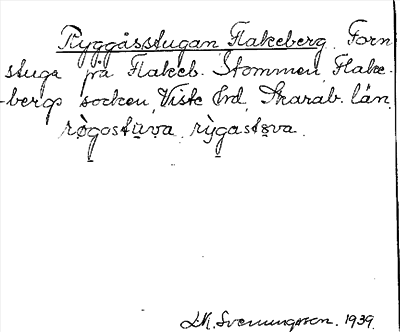 Ryggåsstugan Flakeberg. Forn
stuga på Flakeb. Stommen, Flake-
bergs socken, Viste hrd, Skarab. län.
rògostu̱va̱. rỳgasto̱va.
S.M. Svenungsson. 1939.